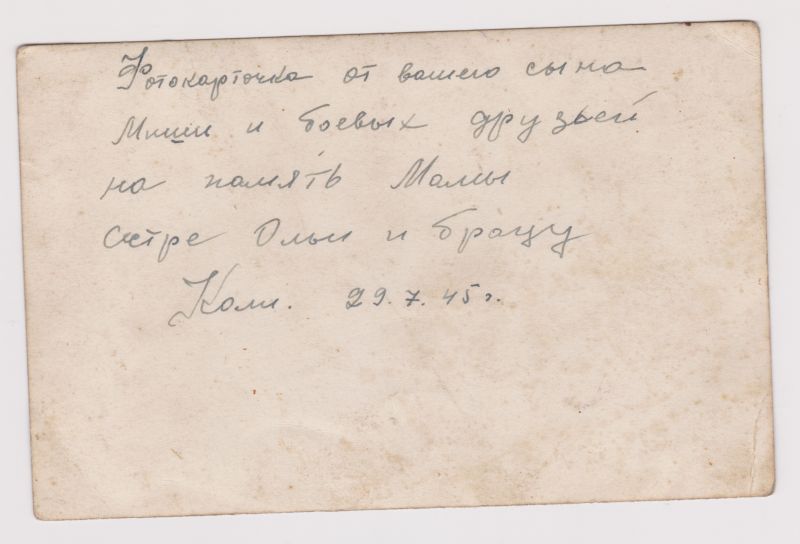 Фотокарточка от вашего сына
Миши и боевых друзьей
на память Мамы
сетре Ольи и брацу
Коли. 29.7.45 г.